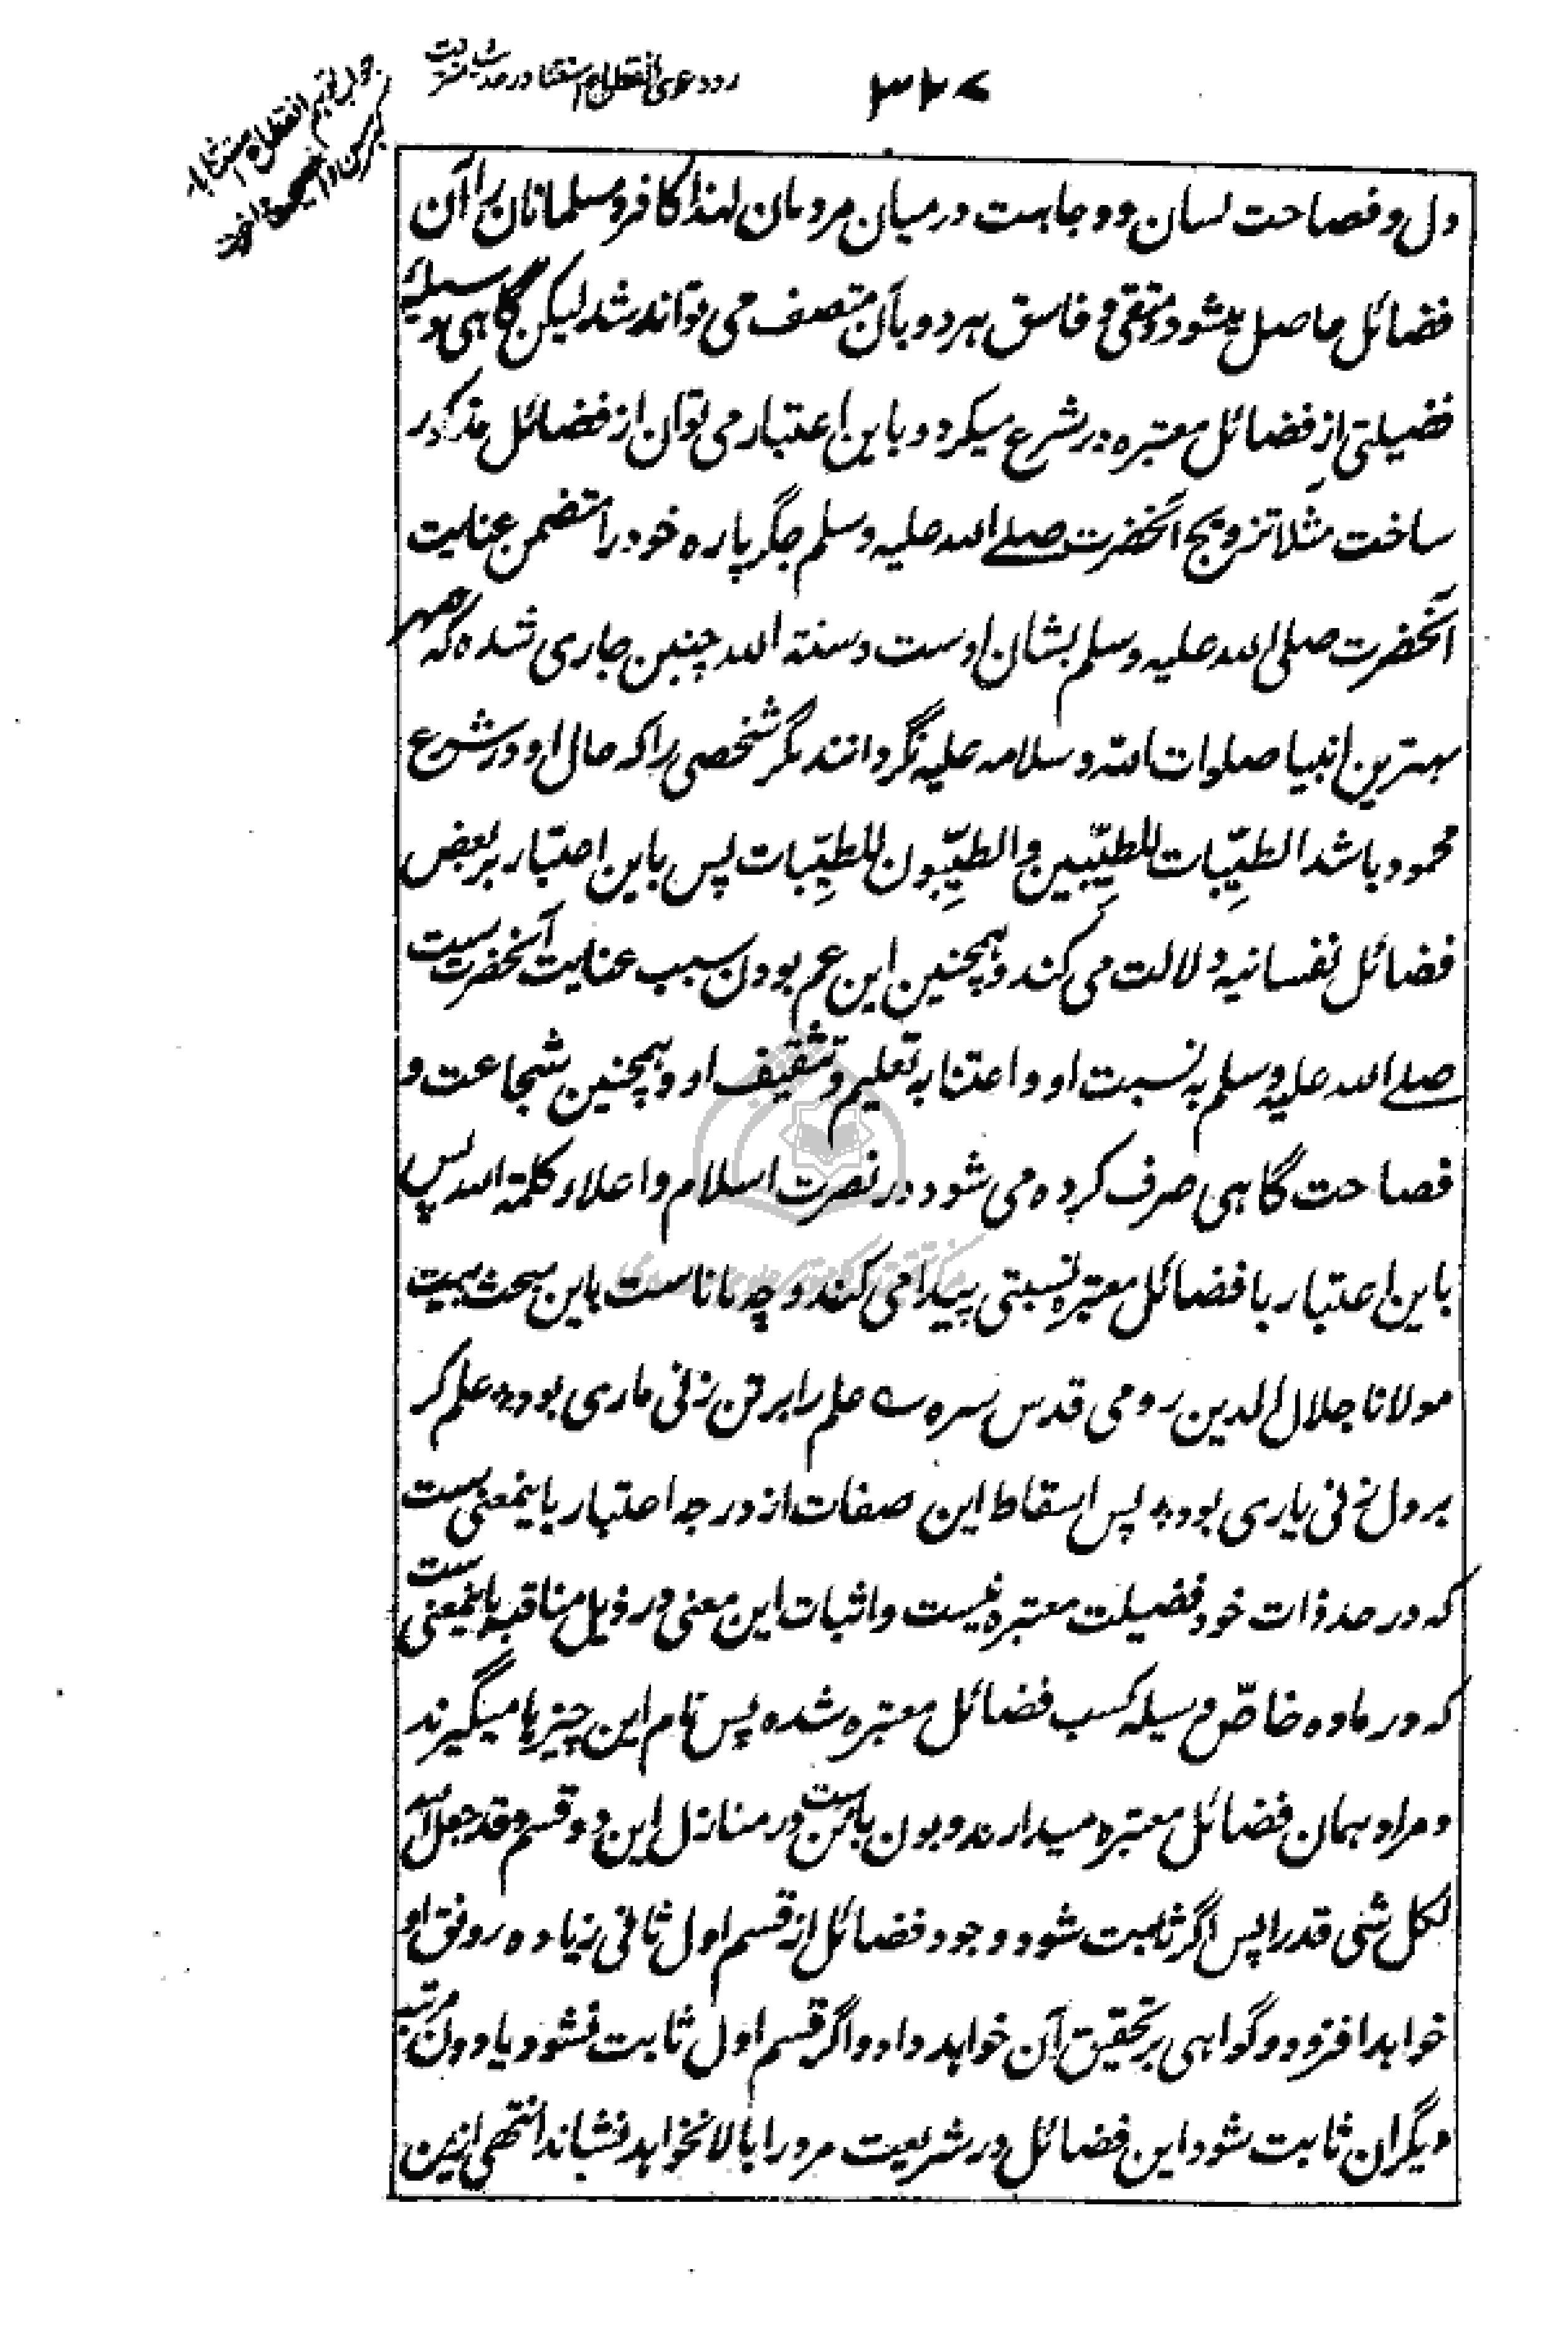 ۳۲۷
رد دعوی انقطاع استثنا در حدیث منزلت
دل و فصاحت لسان و وجاهت درمیان مردمان لهذا کافر و مسلمانان را آن
فضائل حاصل میشود و متقی و فاسق هردو بآن متصف می تواند شد لیکن گاهی وسیلهٔ
فضیلتی از فضائل معتبره در شرع میگردد و باین اعتبار می توان از فضائل مذکور
ساخت مثلا تزویج آنحضرت صلے الله علیه وسلم جگر پاره خود را متضمن عنایت
آنحضرت صلی الله علیه وسلم بشان اوست و سنة الله چنین جاری شده که صهر
بهترین انبیا صلوات الله و سلامه علیه نگردانند مگر شخصی را که حال او در شرع
محمود باشد الطیّبات للطیّبین والطیّبون للطیّبات پس باین اعتبار بر بعض
فضائل نفسانیه دلالت می کند و همچنین ابن عم بودن سبب عنایت آنحضرت ست
صلے الله علیه وسلم به نسبت او و اعتنا به تعلیم و تثقیف او و همچنین شجاعت و
فصاحت گاهی صرف کرده می شود در نصرت اسلام و اعلاء کلمة الله پس
باین اعتبار با فضائل معتبره نسبتی پیدا می کند و چه مانا ست باین مبحث بیت
مولانا جلال الدین رومی قدس سره ے علم را بر تن زنی ماری بود؞ علم گر
بر دل زنی یاری بود؞ پس اسقاط این صفات از درجه اعتبار باینمعنی ست
که در حد ذات خود فضیلت معتبره نیست و اثبات این معنی در ذیل مناقب باینمعنی ست
که در ماده خاصّ وسیله کسب فضائل معتبره شده پس نام این چیزها میگیرند
و مراد همان فضائل معتبره میدارند و بون بائن ست در منازل این دو قسم و قد جعل الله
لکل شی قدرا پس اگر ثابت شود وجود فضائل از قسم اول ثانی زیاده رونق او
خواهد افزود و گواهی بر تحقیق آن خواهد داد و اگر قسم اول ثابت نشود یا دون مرتبه
دیگران ثابت شود این فضائل در شریعت مرد را بالا نخواهد نشاند انتهی ازین